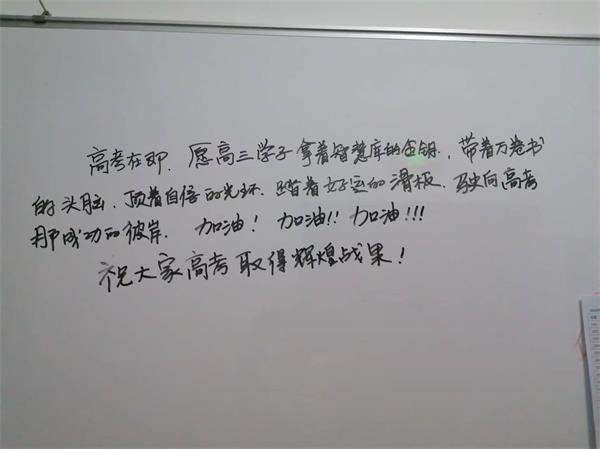 高考在即,愿高三学子拿着智慧库的金钥,带着万卷书
的头脑,顶着自信的光环,踏着好运的滑板,驶向高考
那成功的彼岸。加油!加油!!加油!!!
祝大家高考取得辉煌战果!